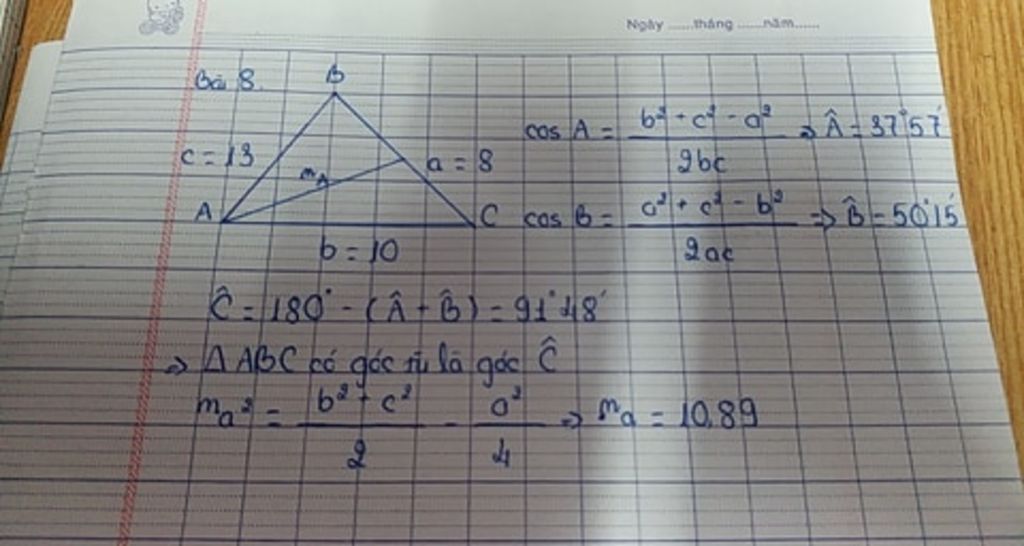 Ngày ......tháng ......năm......
Bài 8.
B
c = 13
mA
a = 8
A
C
b = 10
cos A = (b² + c² - a²) / 2bc ⇒ Â = 37°57'
cos B = (a² + c² - b²) / 2ac ⇒ B̂ = 50°15'
Ĉ = 180° - (Â + B̂) = 91°48'
⇒ Δ ABC có góc tù là góc Ĉ
ma² = (b² + c²) / 2 - a² / 4 ⇒ ma = 10,89